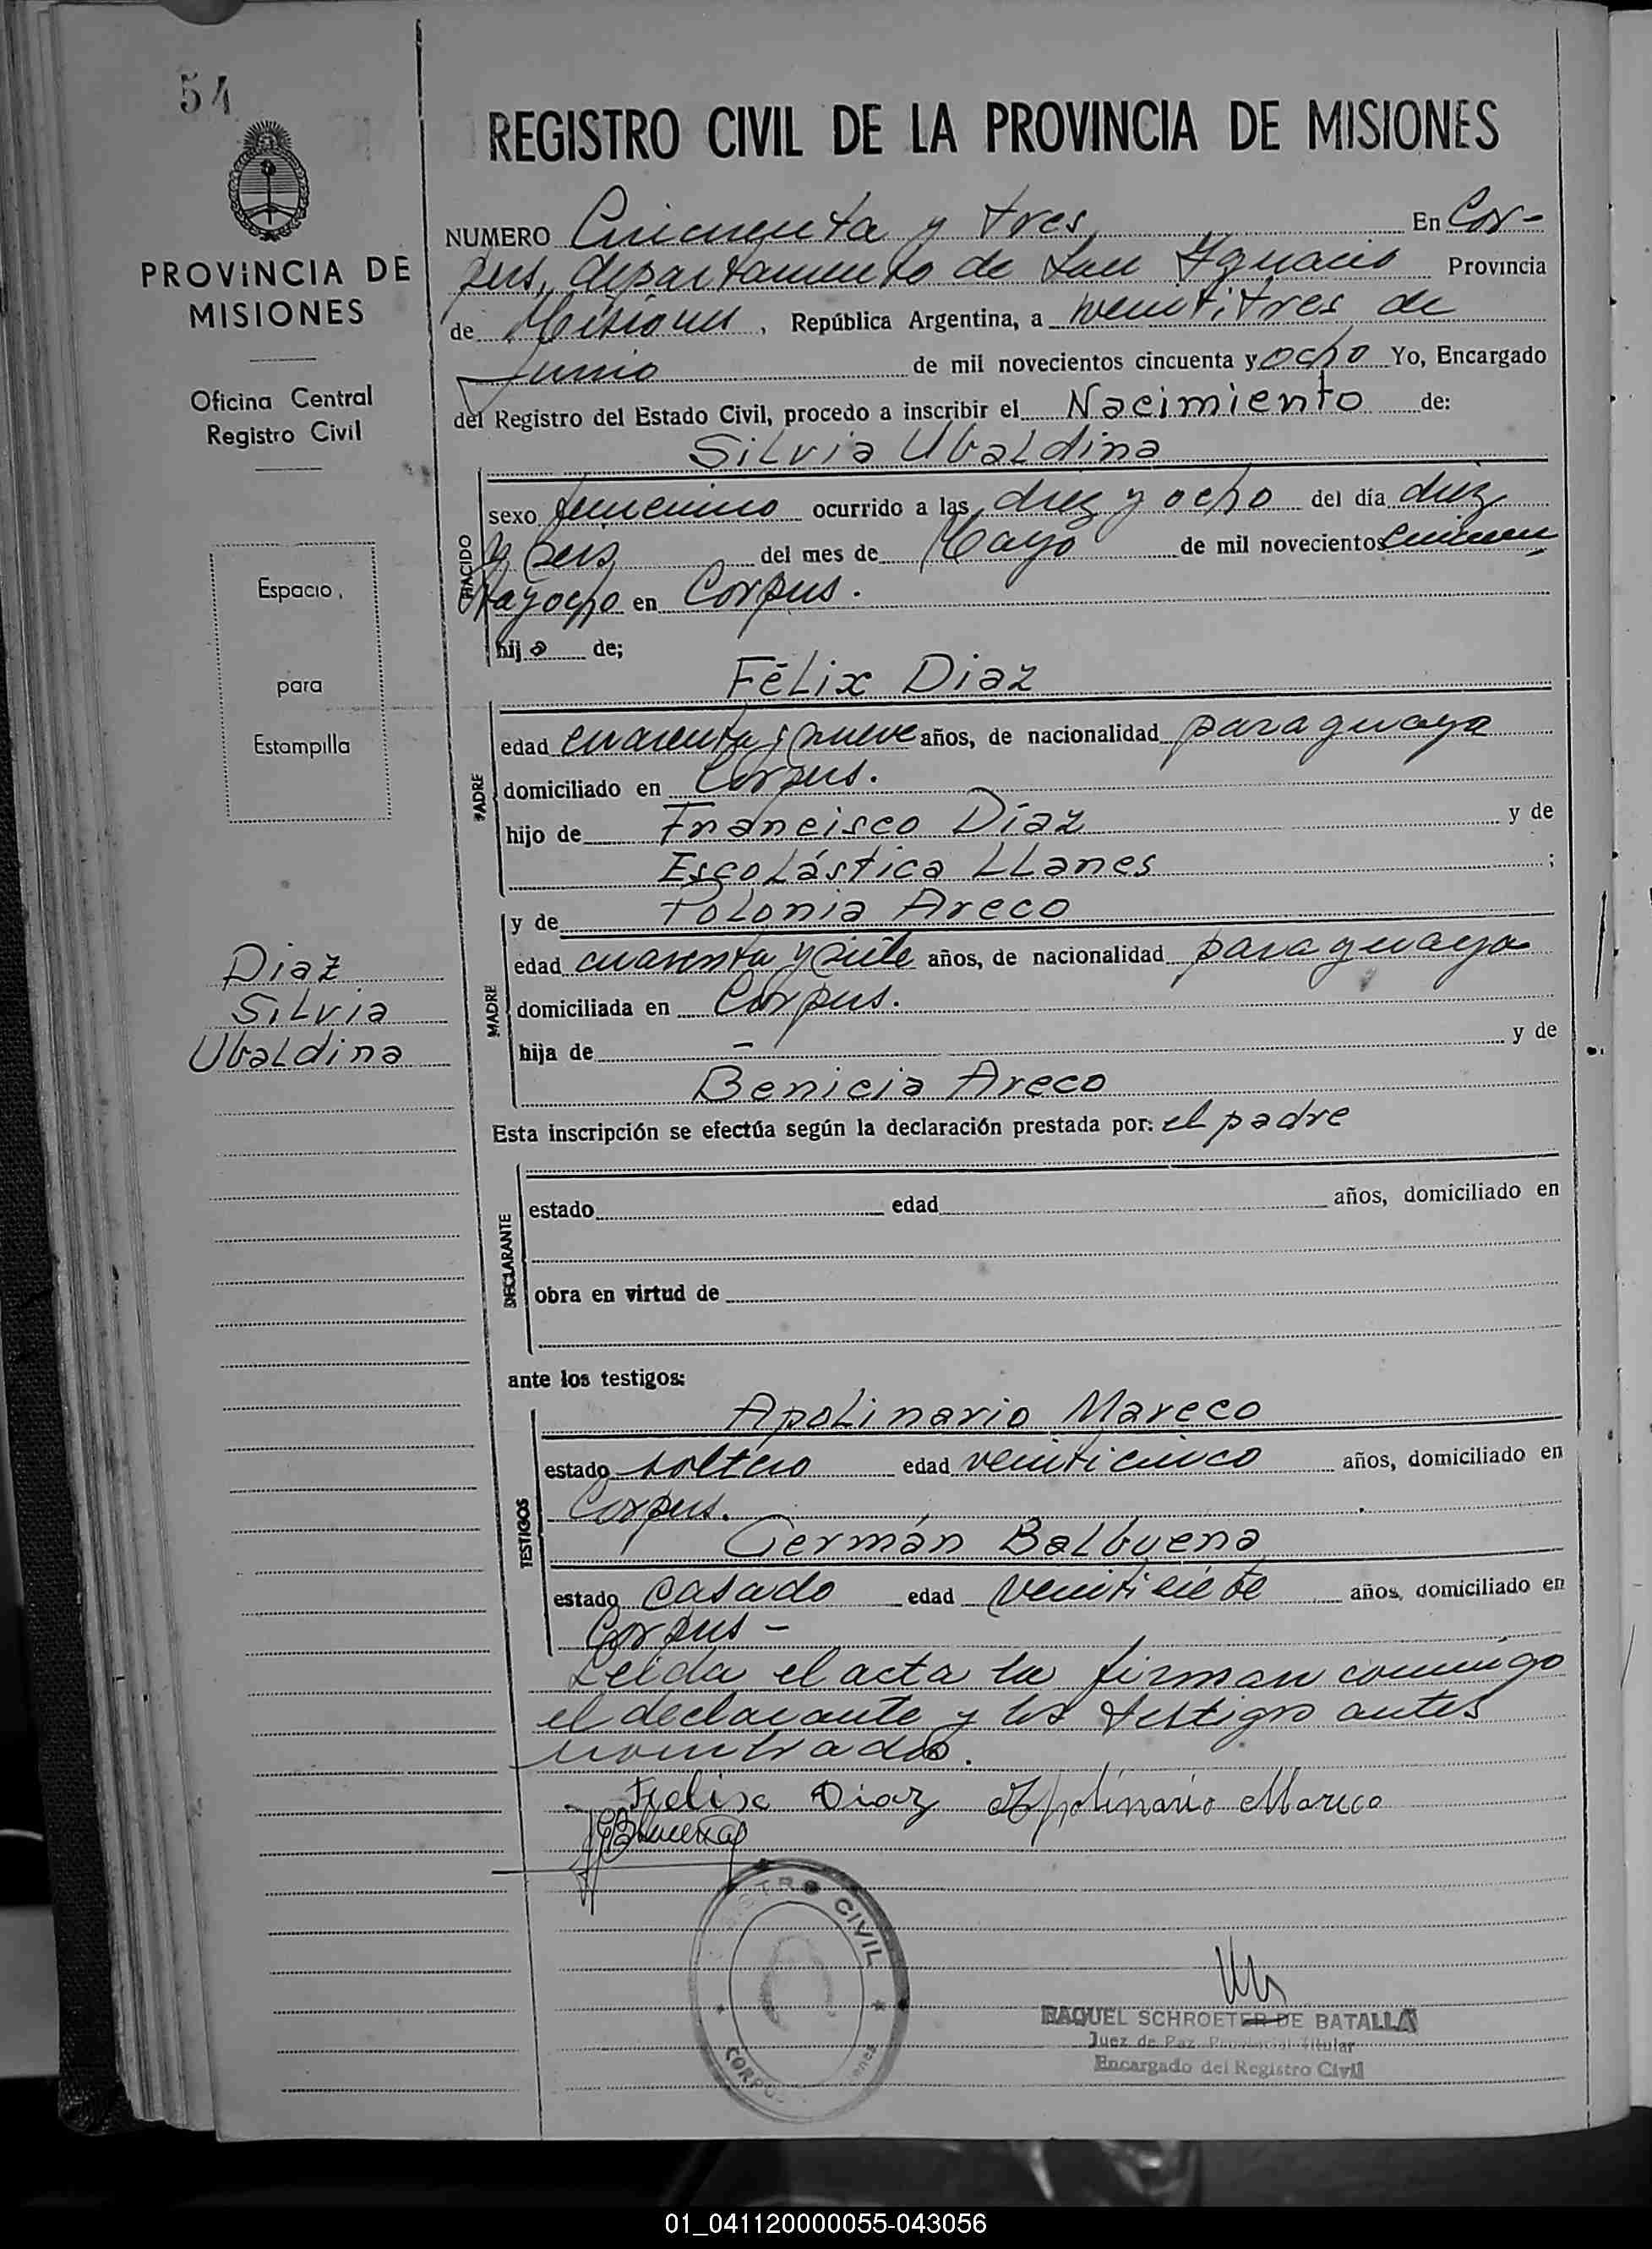 54
REGISTRO CIVIL DE LA PROVINCIA DE MISIONES
PROVINCIA DE
MISIONES
Oficina Central
Registro Civil
Espacio
para
Estampilla
Diaz
Silvia
Ubaldina
NUMERO Cincuenta y tres En Cor-
pus, departamento de San Ygnacio Provincia
de Misiones, República Argentina, a veintitres de
Junio de mil novecientos cincuenta y ocho Yo, Encargado
del Registro del Estado Civil, procedo a inscribir el Nacimiento de:
Silvia Ubaldina
NACIDO
sexo femenino ocurrido a las diez y ocho del día diez
y seis del mes de Mayo de mil novecientos cincuen
ta y ocho en Corpus.
hija de;
Félix Diaz
PADRE
edad cuarenta y nueve años, de nacionalidad paraguaya
domiciliado en Corpus.
hijo de Francisco Díaz y de
Escolástica LLanes ;
y de Polonia Areco
MADRE
edad cuarenta y siete años, de nacionalidad paraguaya
domiciliada en Corpus.
hija de - y de
Benicia Areco
Esta inscripción se efectúa según la declaración prestada por: el padre
DECLARANTE
estado edad años, domiciliado en
obra en virtud de
ante los testigos:
Apolinario Mareco
TESTIGOS
estado soltero edad veinticinco años, domiciliado en
Corpus.
Germán Balbuena
estado casado edad veintisiete años, domiciliado en
Corpus -
Leída el acta la firman conmigo
el declarante y los testigos antes
nombrados.
Felix Diaz Apolinario Mareco
REGISTRO CIVIL
CORPUS
RAQUEL SCHROETER DE BATALLA
Juez de Paz Titular
Encargado del Registro Civil
01_041120000055-043056